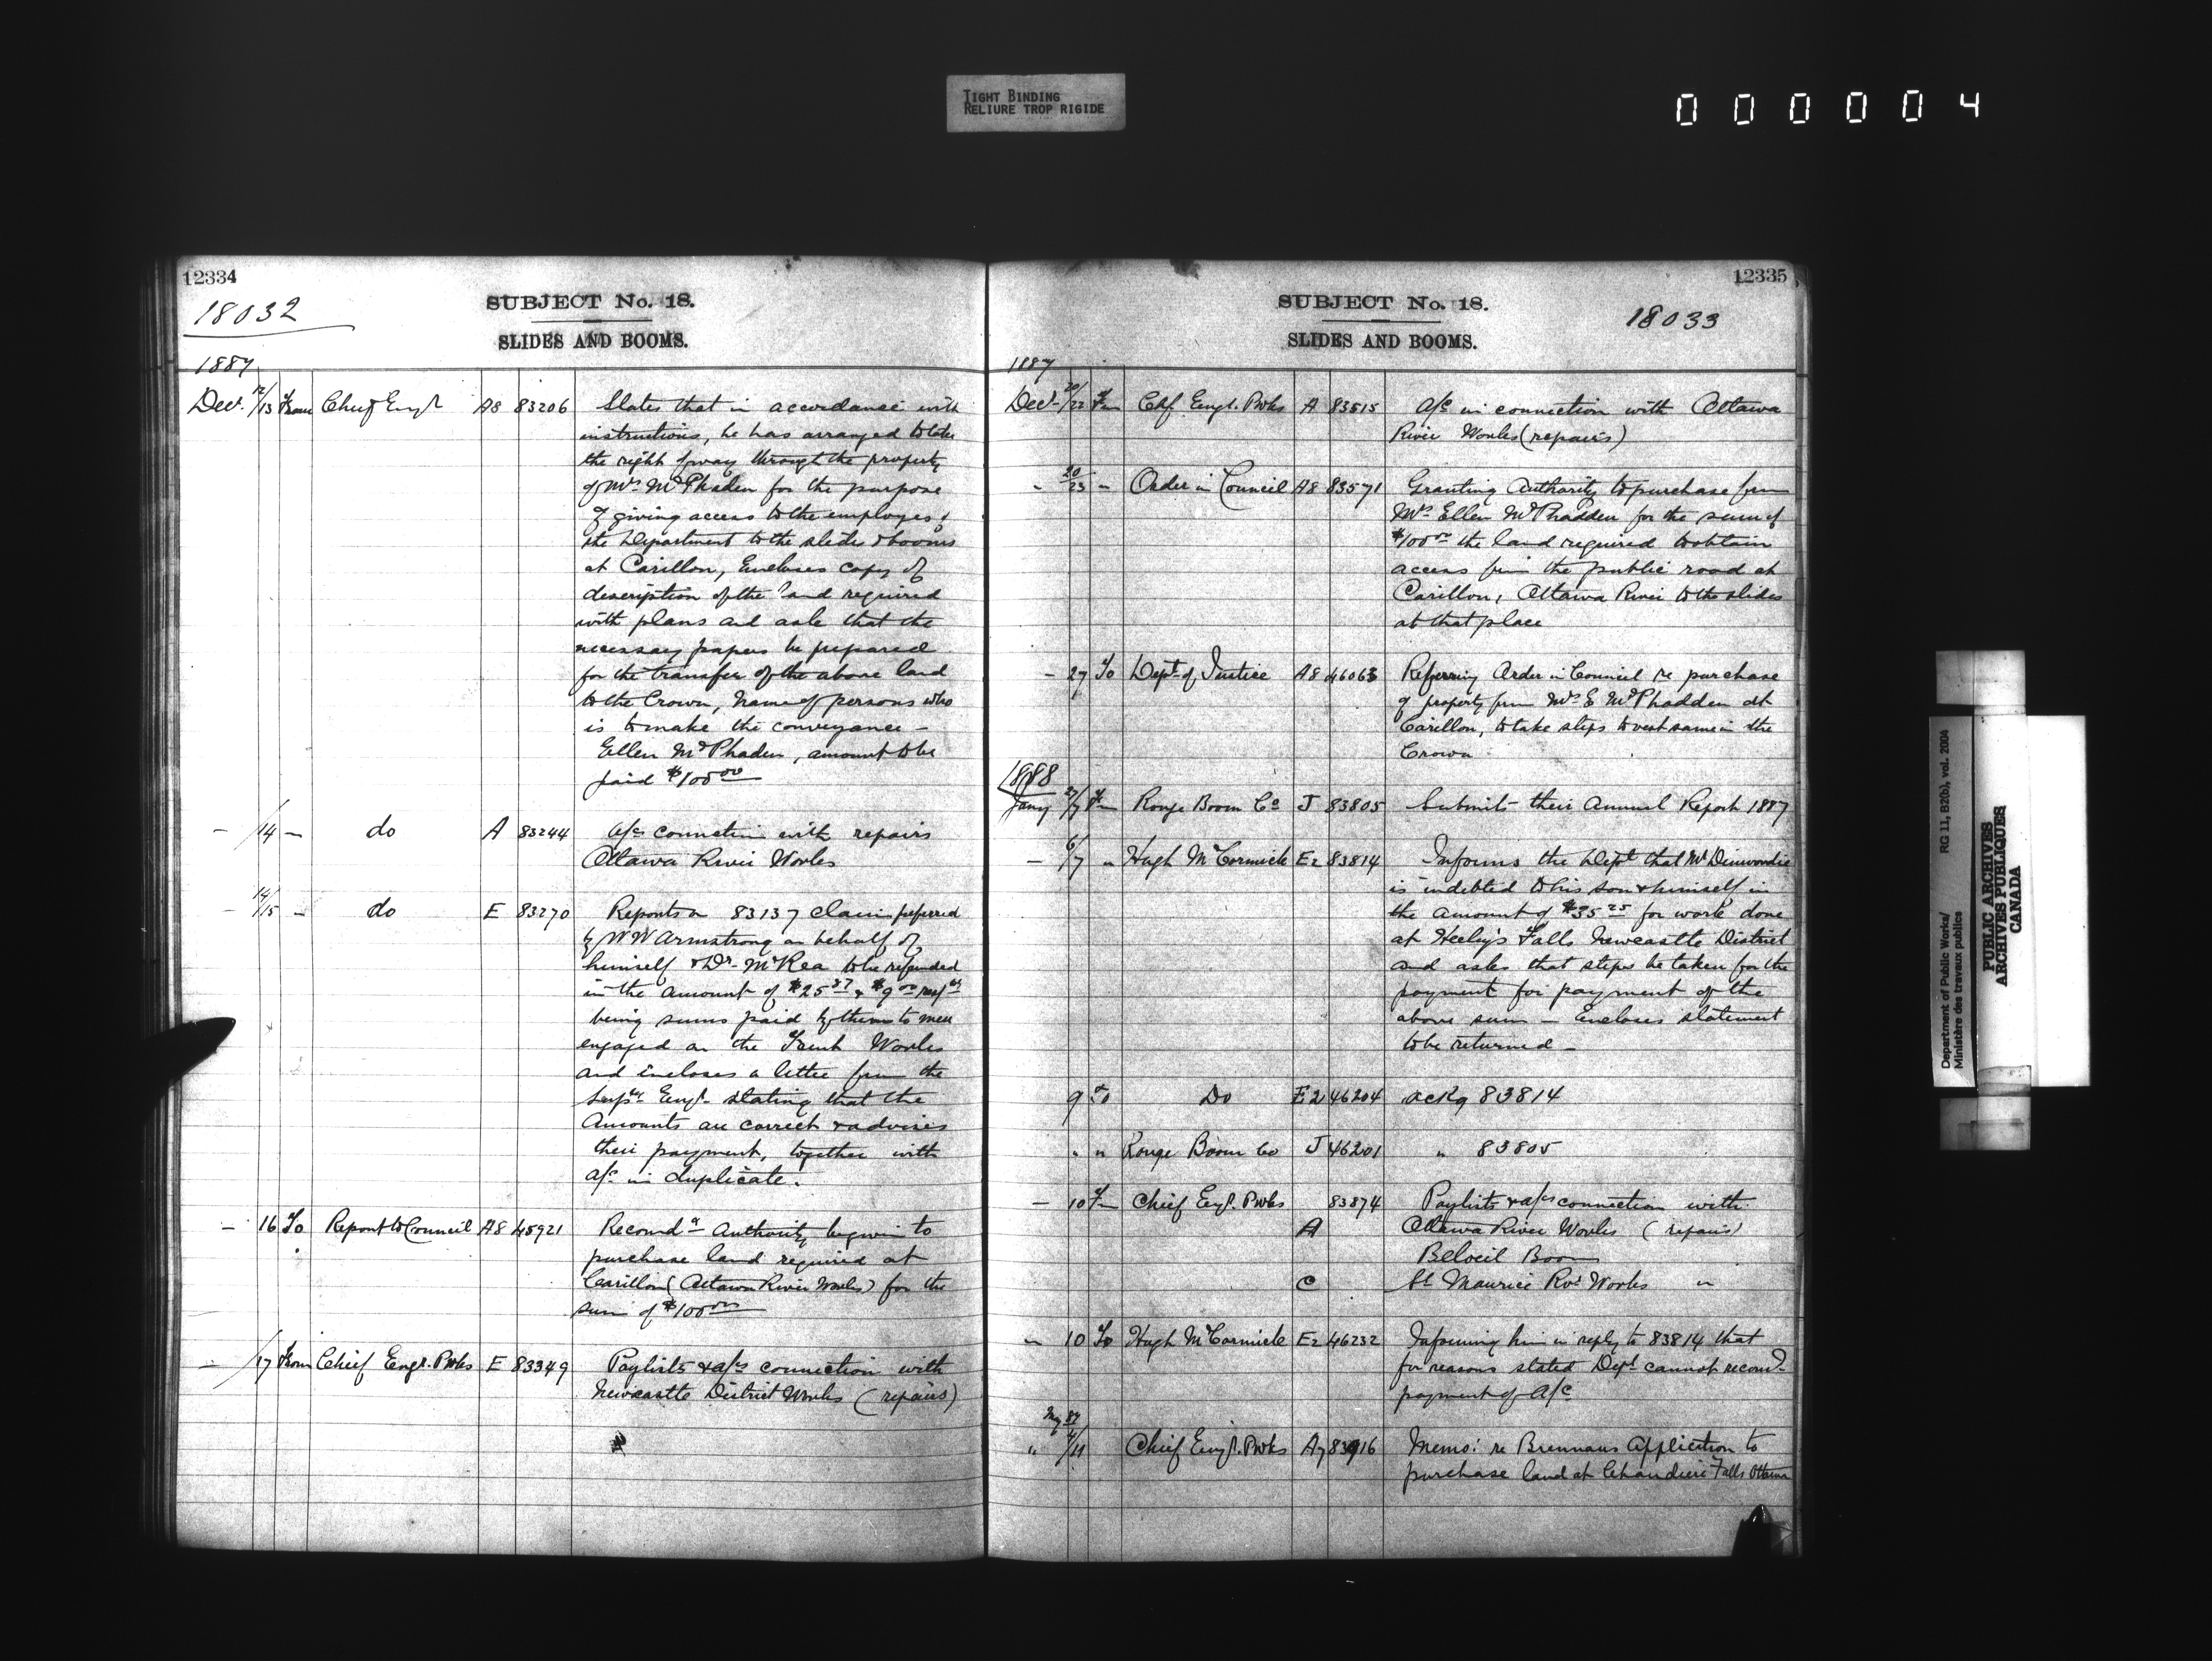 TIGHT BINDING
RELIURE TROP RIGIDE
000004
12334
18032
SUBJECT No. 18.
SLIDES AND BOOMS.
1887
Decr. 12/13 From Chief Engr A8 83206 States that in accordance with
instructions, he has arranged to take
the right of way through the property
of Mrs McPhaden for the purpose
of giving access to the employes of
the Department to the slides & booms
at Carillon, Encloses copy of
description of the land required
with plans and asks that the
necessary papers be prepared
for the transfer of the above land
to the Crown, Name of persons who
is to make the conveyance –
Ellen McPhaden, amount to be
paid $100.00
– /14 – do A 83244 a/cs connection with repairs
Ottawa River Works
– 14/15 – do E 83270 Reports on 83137 claim preferred
by W W Armstrong on behalf of
himself & Dr. McRea to be refunded
in the amount of $25.87 & $9.00
being sums paid by them to men
engaged on the Trent Works
and incloses a letter from the
Suptg Engr. stating that the
Amounts are correct & advises
their payment, together with
a/c in duplicate.
– 16 To Report to Council A8 45921 Recomdg Authority be given to
purchase land required at
Carillon (Ottawa River Works) for the
sum of $100.00
– /17 From Chief Engr. P Wks E 83349 Paylists & a/cs connection with
Newcastle District Works (repairs)
12335
18033
SUBJECT No. 18.
SLIDES AND BOOMS.
1887
Decr 20/22 Fm Chf Engr. P Wks A 83515 a/c in connection with Ottawa
River Works (repairs)
" 20/23 – Order in Council A8 83571 Granting Authority to purchase from
Mrs Ellen McPhadden for the sum of
$100.00 the land required to obtain
access from the public road at
Carillon, Ottawa River to the slides
at that place
– 27 To Dept of Justice A8 46063 Referring Order in Council re purchase
of property from Mrs E McPhadden at
Carillon, to take steps to vest same in the
Crown
1888
Jany 27/7 Fm Rouge Boom Co J 83805 Submits their Annual Report 1887
– 6/7 " Hugh McCormick E2 83814 Informs the Dept that Mr Dinwoodie
is indebted to his son & himself in
the amount of $35.25 for work done
at Heeley's Falls Newcastle District
and asks that steps be taken for the
payment for payment of the
above sum – Encloses statement
to be returned –
9 To Do E2 46204 ackg 83814
" " Rouge Boom Co J 46201 " 83805
– 10 Fm Chief Engr. P Wks 83874 Paylists & a/cs connection with
A Ottawa River Works (repairs)
Beloeil Boom
C St Maurice Rvr Works "
– 10 To Hugh McCormick E2 46232 Informing him in reply to 83814 that
for reasons stated Dept cannot recomd.
payment of a/c
" 4/11 Chief Engr. P Wks A7 83916 Memo: re Brennans Application to
purchase land at Chaudiere Falls Ottawa
Department of Public Works/ RG 11, B2(b), vol. 2004
Ministère des travaux publics
PUBLIC ARCHIVES
ARCHIVES PUBLIQUES
CANADA